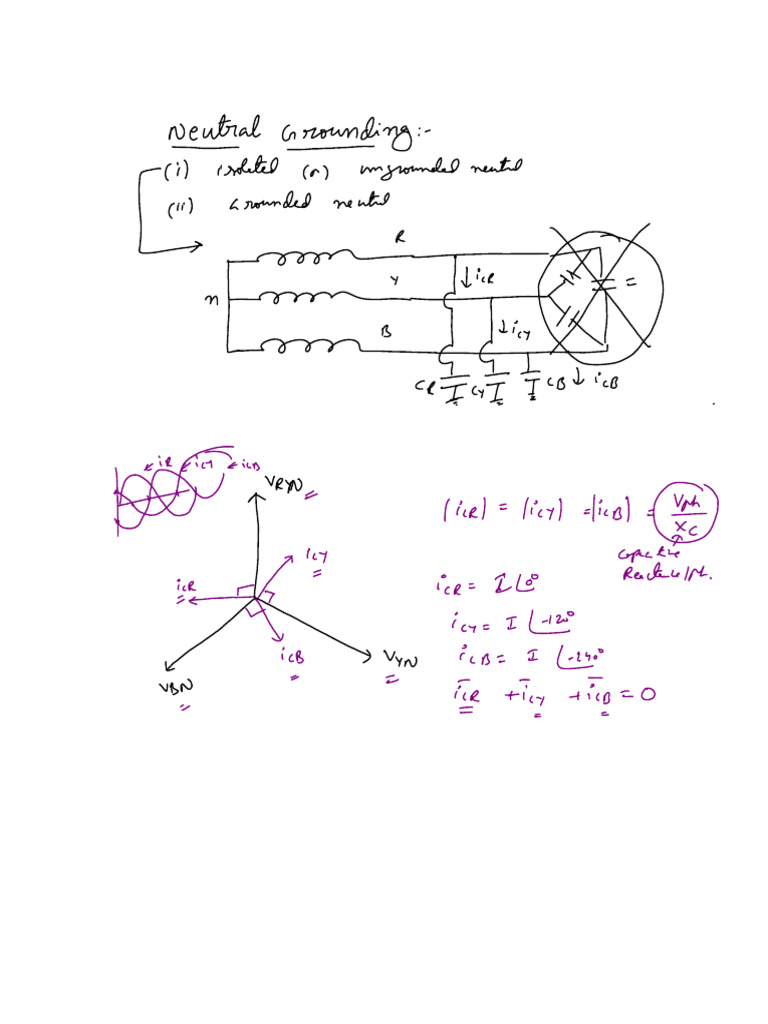 Neutral Grounding:-
(i) isolated (or) ungrounded neutral
(ii) Grounded neutral
R
icR
n
Y
icY
B
CR
CY
CB
icB
iR
icY
icB
VRYN
icY
icR
icB
VYN
VBN
|icR| = |icY| = |icB| = Vph/Xc
Capacitive
Reactance/ph.
icR = I∠0°
icY = I∠-120°
icB = I∠-240°
icR + icY + icB = 0